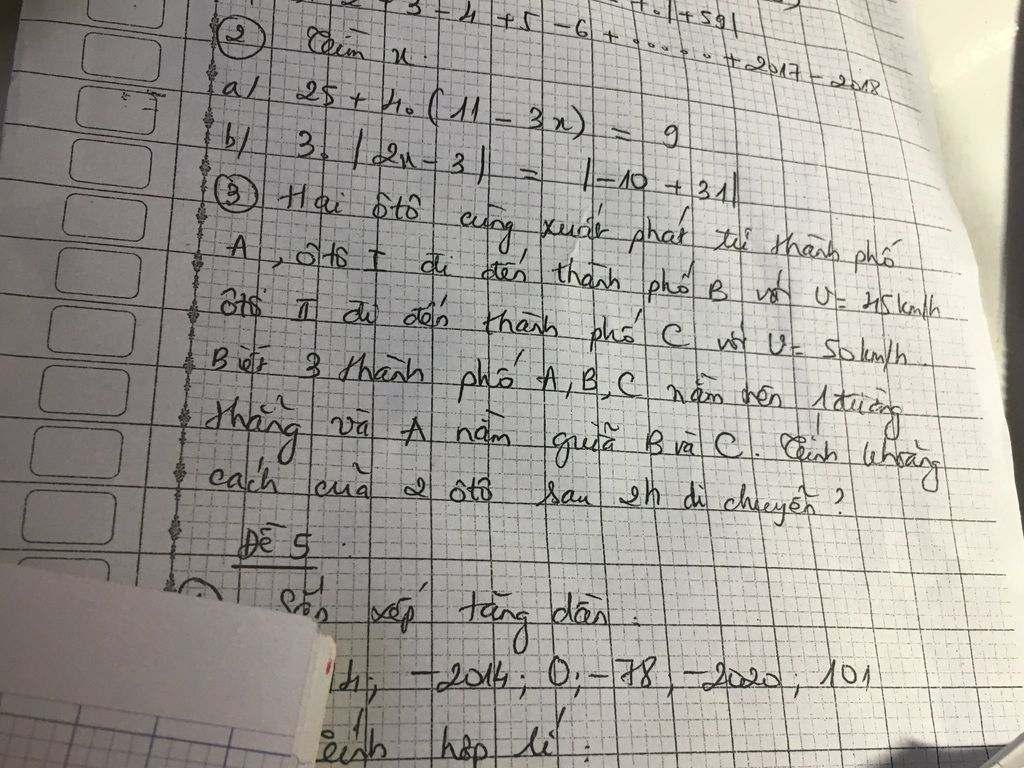 + 3 - 4 + 5 - 6 + ....... + 2017 - 2018
② Tìm x.
a/ 25 + 4.(11 - 3x) = 9
b/ 3.|2x - 3| = |-10 + 31|
③ Hai ôtô cùng xuất phát từ thành phố
A, ôtô I đi đến thành phố B với V = 45km/h
ôtô II đi đến thành phố C với V = 50km/h.
Biết 3 thành phố A, B, C nằm trên 1 đường
thẳng và A nằm giữa B và C. Tính khoảng
cách của 2 ôtô sau 2h di chuyển?
Đề 5.
xếp tăng dần.
4; -2014; 0; -78, -2020; 101
hợp lí: